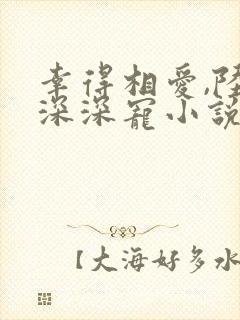 幸得相愛,陸
深深寵小說
【大海好多水